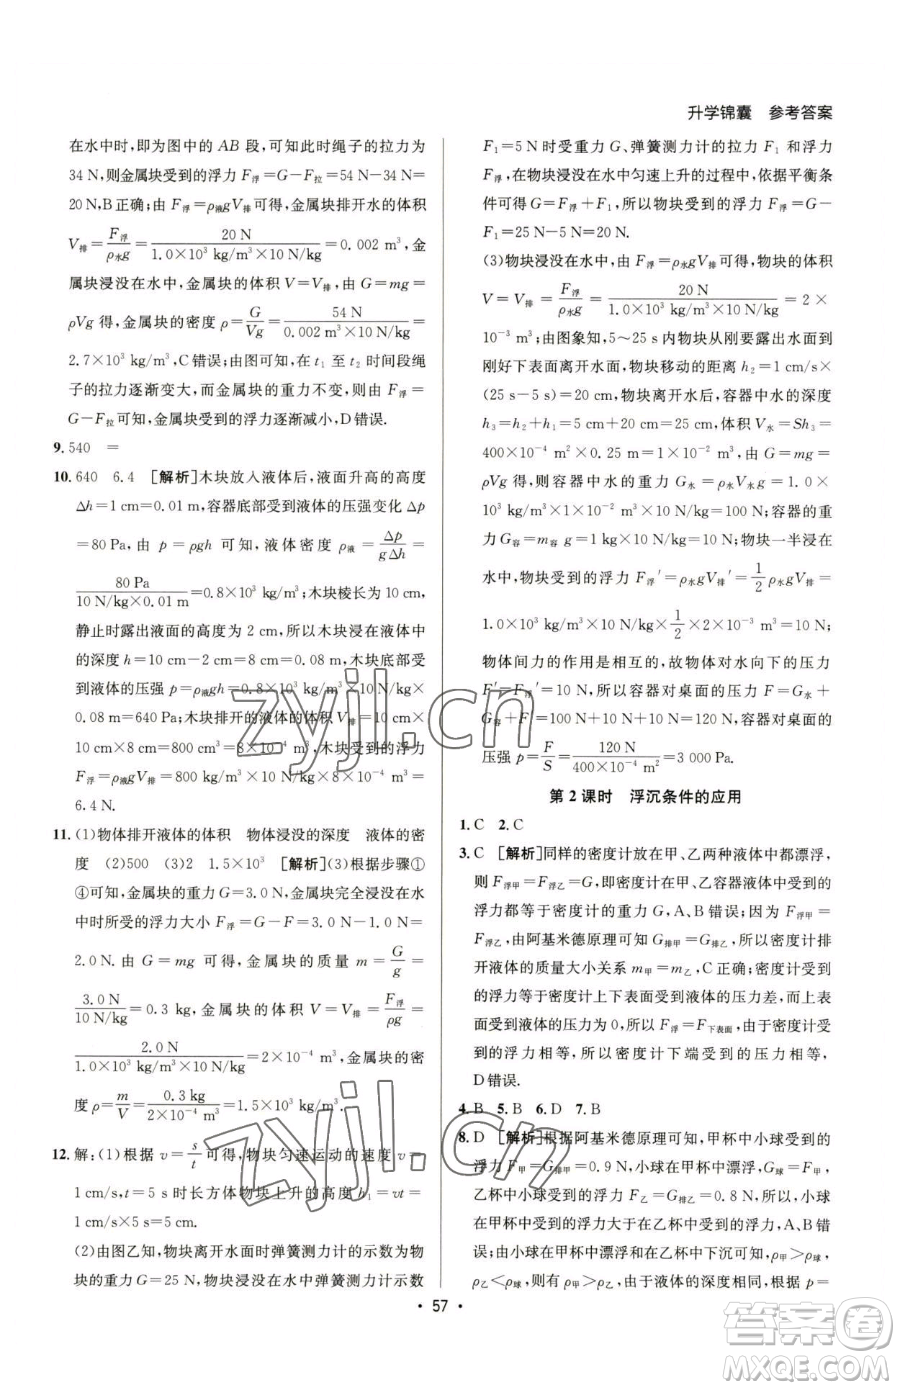 升学锦囊 参考答案
在水中时,即为图中的 AB 段,可知此时绳子的拉力为
34 N,则金属块受到的浮力 F浮=G-F拉=54 N-34 N=
20 N,B正确;由 F浮=ρ液gV排可得,金属块排开水的体积
V排=F浮/ρ水g=20 N/1.0×10³ kg/m³×10 N/kg=0.002 m³,金
属块浸没在水中,金属块的体积 V=V排,由 G=mg=
ρVg 得,金属块的密度 ρ=G/Vg=54 N/0.002 m³×10 N/kg=
2.7×10³ kg/m³,C错误;由图可知,在 t₁ 至 t₂ 时间段绳
子的拉力逐渐变大,而金属块的重力不变,则由 F浮=
G-F拉可知,金属块受到的浮力逐渐减小,D错误.
9.540 =
10.640 6.4 [解析]木块放入液体后,液面升高的高度
Δh=1 cm=0.01 m,容器底部受到液体的压强变化 Δp
=80 Pa,由 p=ρgh 可知,液体密度 ρ液=Δp/gΔh=
80 Pa/10 N/kg×0.01 m=0.8×10³ kg/m³;木块棱长为10 cm,
静止时露出液面的高度为 2 cm,所以木块浸在液体中
的深度 h=10 cm-2 cm=8 cm=0.08 m,木块底部受
到液体的压强 p=ρ液gh=0.8×10³ kg/m³×10 N/kg×
0.08 m=640 Pa;木块排开的液体的体积 V排=10 cm×
10 cm×8 cm=800 cm³=8×10⁻⁴ m³;木块受到的浮力
F浮=ρ液gV排=800 kg/m³×10 N/kg×8×10⁻⁴ m³=
6.4 N.
11.(1)物体排开液体的体积 物体浸没的深度 液体的密
度 (2)500 (3)2 1.5×10³ [解析](3)根据步骤①
④可知,金属块的重力 G=3.0 N,金属块完全浸没在水
中时所受的浮力大小 F浮=G-F=3.0 N-1.0 N=
2.0 N.由 G=mg 可得,金属块的质量 m=G/g=
3.0 N/10 N/kg=0.3 kg,金属块的体积 V=V排=F浮/ρg=
2.0 N/1.0×10³ kg/m³×10 N/kg=2×10⁻⁴ m³,金属块的密
度 ρ=m/V=0.3 kg/2×10⁻⁴ m³=1.5×10³ kg/m³.
12.解:(1)根据 v=s/t 可得,物块匀速运动的速度 v=
1 cm/s,t=5 s时长方体物块上升的高度 h₁=vt=
1 cm/s×5 s=5 cm.
(2)由图乙知,物块离开水面时弹簧测力计的示数为物
块的重力 G=25 N,物块浸没在水中弹簧测力计示数
F₁=5 N时受重力 G、弹簧测力计的拉力 F₁ 和浮力
F浮,在物块浸没在水中匀速上升的过程中,依据平衡条
件可得 G=F浮+F₁,所以物块受到的浮力 F浮=G-
F₁=25 N-5 N=20 N.
(3)物块浸没在水中,由 F浮=ρ水gV排可得,物块的体积
V=V排=F浮/ρ水g=20 N/1.0×10³ kg/m³×10 N/kg=2×
10⁻³ m³;由图象知,5~25 s内物块从刚要露出水面到
刚好下表面离开水面,物块移动的距离 h₂=1 cm/s×
(25 s-5 s)=20 cm,物块离开水后,容器中水的深度
h₃=h₂+h₁=5 cm+20 cm=25 cm,水的体积 V水=Sh₃=
400×10⁻⁴ m²×0.25 m=0.01 m³;由 G=mg=
ρVg 可得,容器中水的重力 G水=ρ水V水g=1.0×
10³ kg/m³×0.01 m³×10 N/kg=100 N;容器的重力
G容=m容g=1 kg×10 N/kg=10 N;物块一半浸没在
水中,物块受到的浮力 F浮′=ρ水gV排′=1/2ρ水gV排=
1.0×10³ kg/m³×10 N/kg×1/2×2×10⁻³ m³=10 N;
物体间力的作用是相互的,故物块对水向下的压力
F′=F浮′=10 N,所以,容器对桌面的压力 F=G水+
G容+F′=100 N+10 N+10 N=120 N,容器对桌面的
压强 p=F/S=120 N/400×10⁻⁴ m²=3 000 Pa.
第 2 课时 浮沉条件的应用
1.C 2.C
3.C [解析]同样的密度计放在甲、乙两种液体中都漂浮,
则 F浮甲=F浮乙=G,所以密度计在甲、乙容器中受到的
浮力都等于密度计的重力 G,A、B错误;因为 F浮甲=
F浮乙,由阿基米德原理可知 G排甲=G排乙,所以密度计排
开液体的质量大小关系 m甲=m乙,C正确;密度计受到
的浮力等于密度计上下表面受到液体的压力差,而上表
面受到液体的压力为0,所以 F浮=F下表面,由于密度计受
到的浮力相等,所以密度计下端受到的压力相等,
D错误.
4.B 5.B 6.D 7.B
8.D [解析]根据阿基米德原理可知,甲杯中小球受到的
浮力 F甲=G排甲=0.9 N,小球在甲杯中漂浮,F甲=G球,
乙杯中小球受到的浮力 F乙=G排乙=0.8 N,所以小球
在甲杯中受到的浮力大于在乙杯中受到的浮力;小球在
甲杯中漂浮,在乙杯中沉底,由浮沉条件可知,ρ甲>ρ球,
ρ乙<ρ球,则有 ρ甲>ρ乙;两杯中液体的深度相同,根据 p=
57
zyjl.cn
zyjl.cn
答案圈
MXQE.COM